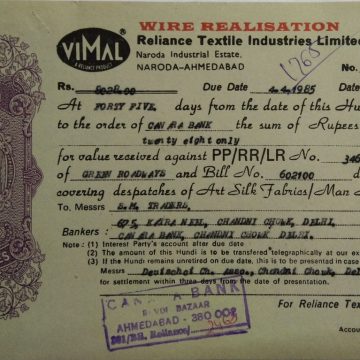 ViMAL
A RELIANCE PRODUCT
WIRE REALISATION
Reliance Textile Industries Limited
Naroda Industrial Estate,
NARODA-AHMEDABAD
1768
No.
Rs. 8028.00 Due Date 4.4.1985
At FORTY FIVE, days from the date of this Hu
to the order of CANARA BANK the sum of Rupees
twenty eight only
for value received against PP/RR/LR No. 346
of GREEN ROADWAYS and Bill No. 602100 d
covering despatches of Art Silk Fabrics/Man
To Messrs S.M. TRADERS,
675, KATRA NEEL, CHANDNI CHOWK, DELHI.
Bankers : CANARA BANK, CHANDNI CHOWK DELHI.
Note : (1) Interest Party's account after due date
(2) The amount of this Hundi is to be transferred telegraphically at our ex
(3) If the Hundi remains unretired on due date, this is to be presented in case
Messrs Deutschei Ch. Asso., Chandni Chowk, De
for settlement within three days from the date of presentation.
For Reliance Text
CANARA BANK
REVDI BAZAAR
AHMEDABAD - 380 002
281/BR. Reliance/
Accou